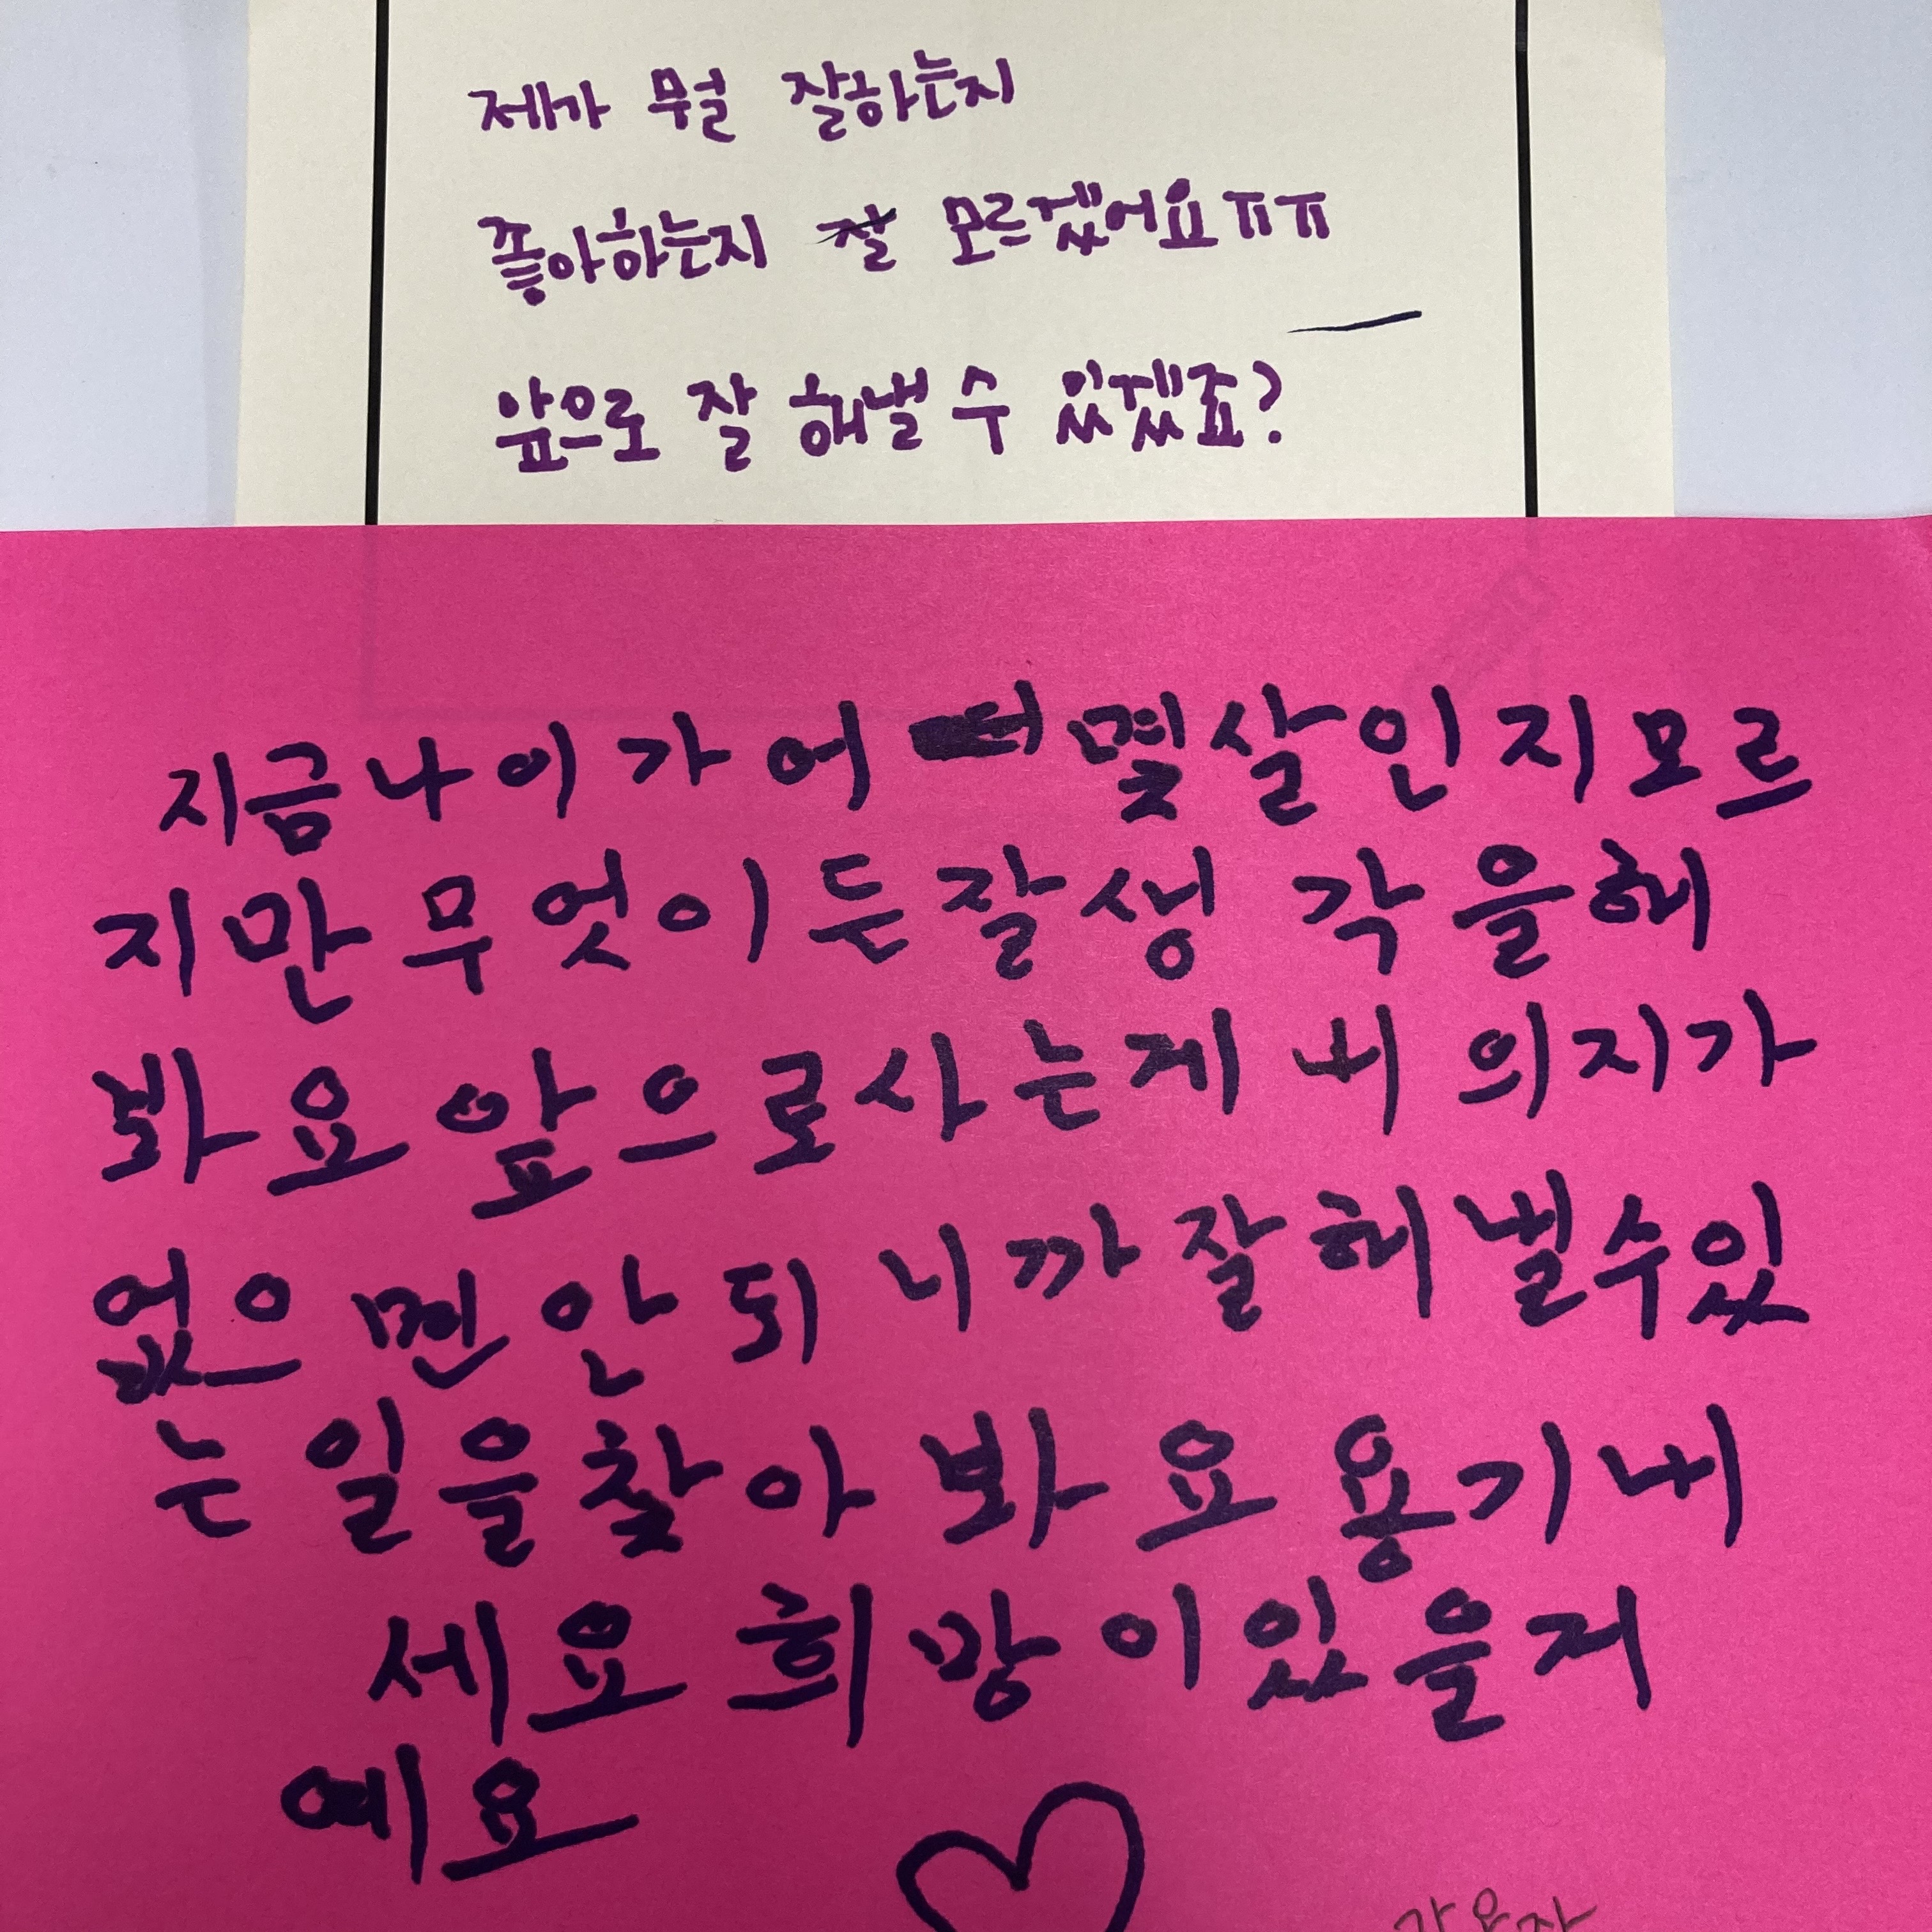 제가 뭘 잘하는지
좋아하는지 잘 모르겠어요ㅠㅠ
앞으로 잘 해낼 수 있겠죠?
지금나이가어 몇살인지모르
지만무엇이든잘생각을해
봐요앞으로사는게내의지가
없으면안되니까잘해낼수있
는일을찾아봐요용기내
세요희망이있을거
예요